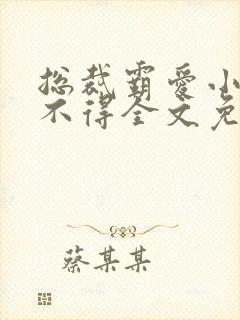 总裁霸爱小
不得全文免
蔡某某